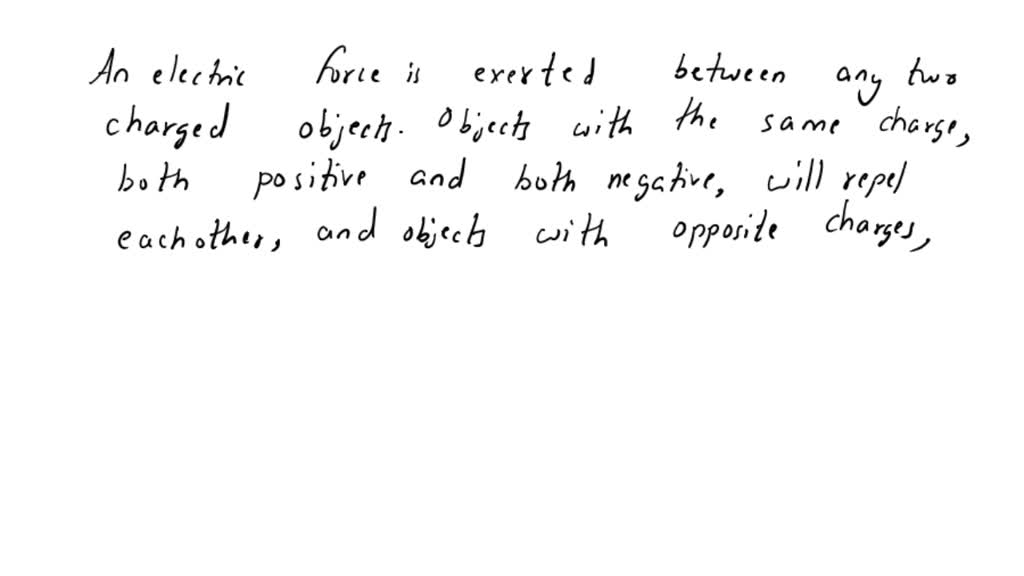 An electric force is exerted between any two
charged objects. Objects with the same charge,
both positive and both negative, will repel
eachother, and objects with opposite charges,